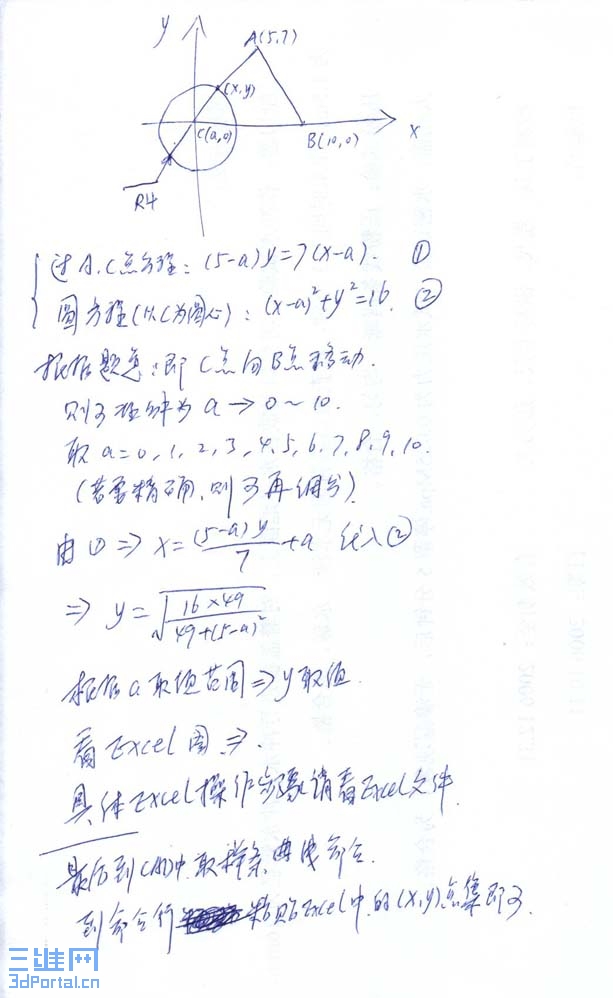 y
A(5,7)
(x,y)
C(a,0)
B(10,0)
x
R4
过A.C点方程: (5-a)y=7(x-a). ①
圆方程(以C为圆心): (x-a)²+y²=16. ②
根据题意:即C点向B点移动.
则可理解为 a → 0~10.
取 a=0,1,2,3,4,5,6,7,8,9,10.
(若需精确,则可再细分)
由①⇒ x=(5-a)y/7+a 代入②
⇒ y=√(16×49/(49+(5-a)²))
根据a取值范围⇒y取值.
看Excel图⇒.
具体Excel操作步骤请看Excel文件.
最后到CAD中.取样条曲线命令.
到命令行 粘贴Excel中的(x,y)点集即可.
三维网
3dPortal.cn